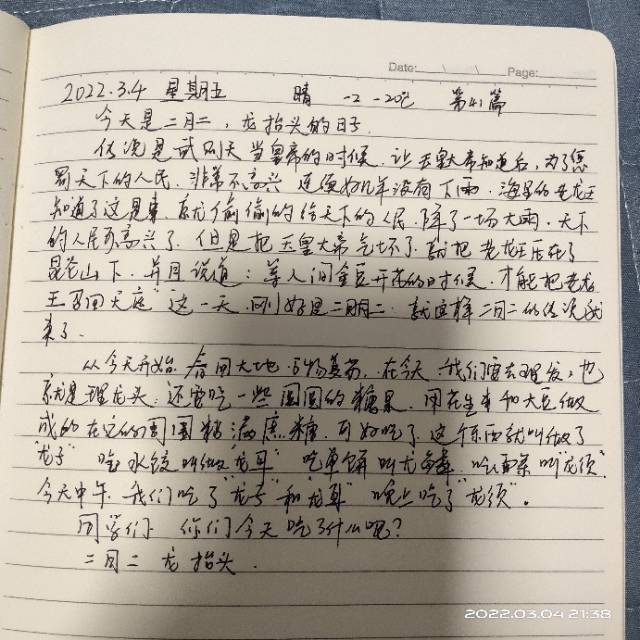 Date: Page:
2022.3.4 星期五 晴 -2 -20℃ 第41篇
今天是二月二，龙抬头的日子.
传说是武则天当皇帝的时候.让玉皇大帝知道后，为了惩
罚天下的人民.非常不高兴 连续好几年没有下雨.海里的老龙王
知道了这是事.就偷偷的给天下的人民.降了一场大雨.天下
的人民可高兴了.但是把玉皇大帝气坏了.就把老龙王压在了
昆仑山下.并且说道：等人间金豆开花的时候.才能把老龙
王召回天庭"这一天.刚好是二月二.就这样二月二的传说就
来了.
从今天开始.春回大地.万物复苏.在今天 我们要去理发，也
就是理龙头.还要吃一些圆圆的糖果.用花生米和大豆做
成的在它的周围粘满蔗糖.可好吃了.这个东西就叫做了
"龙子" 吃水饺叫做"龙耳" 吃单饼叫龙鳞 吃面条叫"龙须".
今天中午.我们吃了"龙子"和"龙耳" 晚上吃了"龙须".
同学们 你们今天吃了什么呢?
二月二 龙抬头.
2022.03.04 21:38